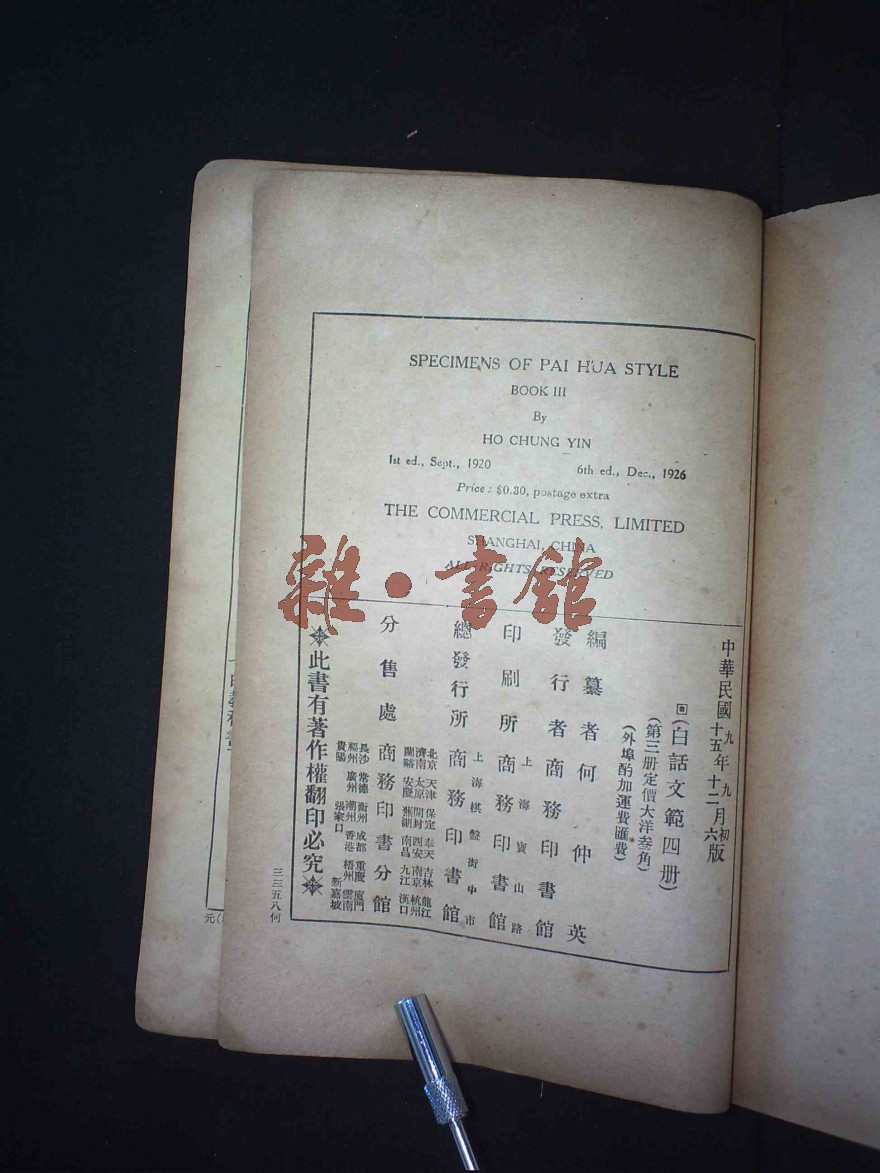 SPECIMENS OF PAI HUA STYLE
BOOK III
By
HO CHUNG YIN
1st ed., Sept., 1920 6th ed., Dec., 1926
Price: $0.30, postage extra
THE COMMERCIAL PRESS, LIMITED
SHANGHAI, CHINA
ALL RIGHTS RESERVED
雜·書館
中華民國九年九月初版
十五年十二月六版
(白話文範四册)
(第三册定價大洋叁角)
(外埠酌加運費匯費)
編纂者 何仲英
發行者 商務印書館
印刷所 上海寶山路 商務印書館
總發行所 上海棋盤街中市 商務印書館
分售處 商務印書分館
北京 天津 保定 奉天 吉林 龍江
濟南 太原 開封 西安 南京 杭州
蘭谿 安慶 蕪湖 南昌 九江 漢口
長沙 常德 衡州 成都 重慶 廈門
福州 廣州 潮州 香港 梧州 雲南
貴陽 張家口 新嘉坡
此書有著作權翻印必究
三三五八何